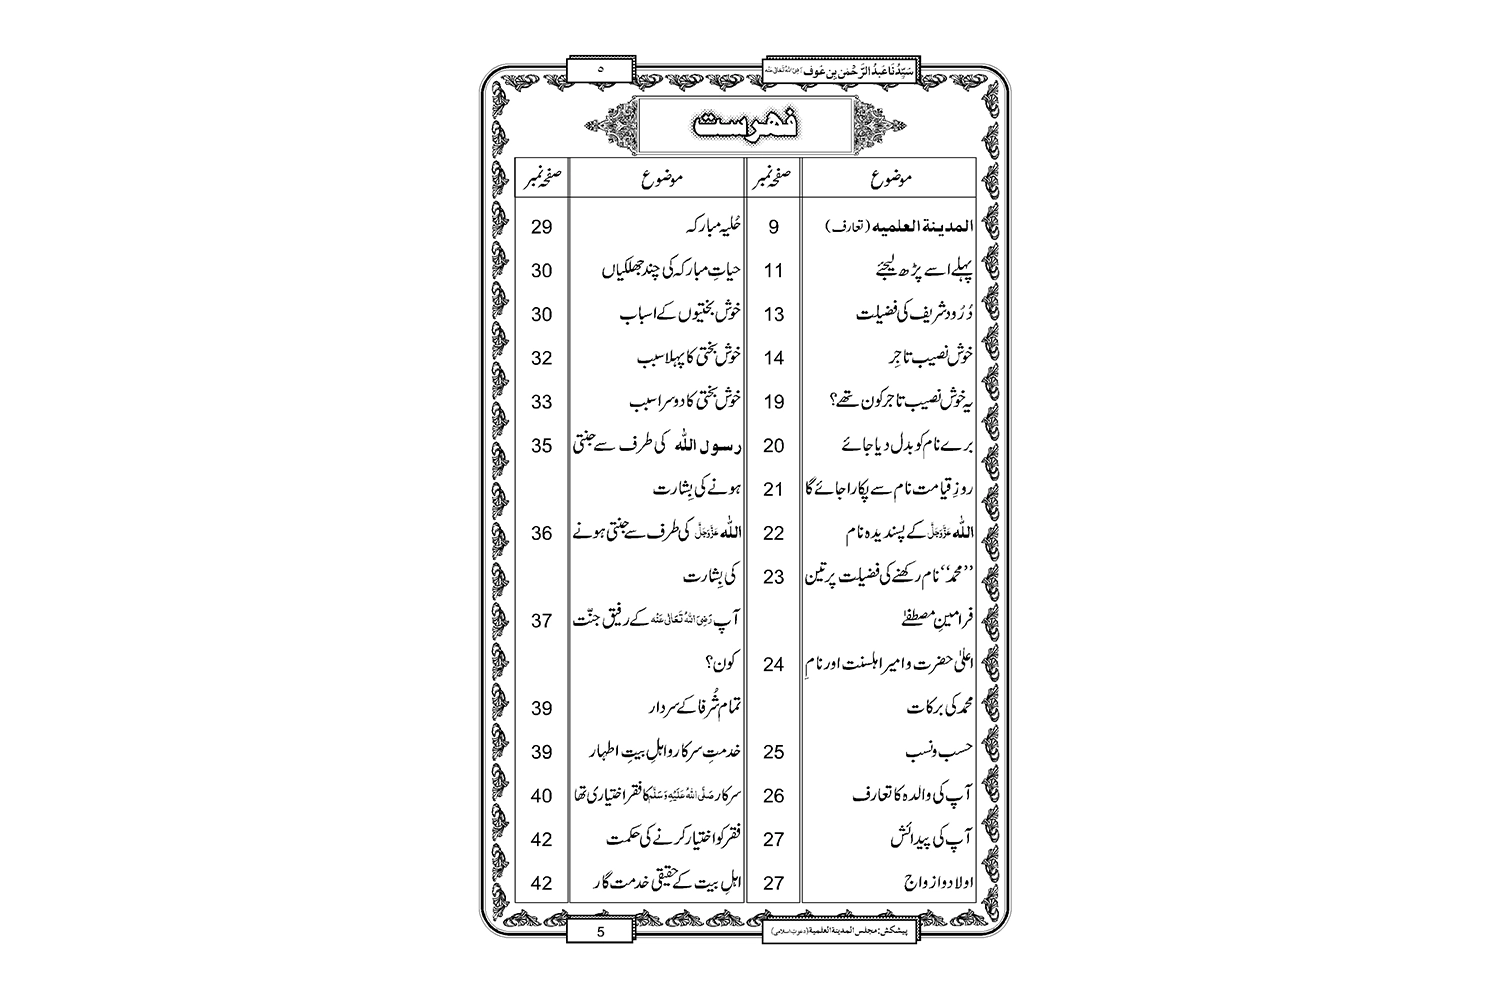 سَیِّدُنَا عَبدُ الرَّحْمٰن بِن عَوف رَضِیَ اللّٰہُ تَعَالٰی عَنْہ ٥
فہرست
موضوع صفحہ نمبر موضوع صفحہ نمبر
المدینۃ العلمیہ (تعارف) 9 حُلیہ مبارکہ 29
پہلے اسے پڑھ لیجئے 11 حیاتِ مبارکہ کی چند جھلکیاں 30
دُرُود شریف کی فضیلت 13 خوش بختیوں کے اسباب 30
خوش نصیب تاجِر 14 خوش بختی کا پہلا سبب 32
یہ خوش نصیب تاجر کون تھے؟ 19 خوش بختی کا دوسرا سبب 33
برے نام کو بدل دیا جائے 20 رسول اللّٰہ کی طرف سے جنتی 35
روزِ قیامت نام سے پکارا جائے گا 21 ہونے کی بِشارت
اللّٰہ عَزَّوَجَلَّ کے پسندیدہ نام 22 اللّٰہ عَزَّوَجَلَّ کی طرف سے جنتی ہونے 36
’’محمد‘‘ نام رکھنے کی فضیلت پر تین 23 کی بِشارت
فرامینِ مصطفےٰ آپ رَضِیَ اللّٰہُ تَعَالٰی عَنْہ کے رفیق جنّت 37
اعلیٰ حضرت و امیر اہلسنت اور نامِ 24 کون؟
محمد کی برکات تمام شُرفا کے سردار 39
حسب و نسب 25 خدمتِ سرکار و اہلِ بیتِ اطہار 39
آپ کی والدہ کا تعارف 26 سرکار صَلَّی اللّٰہُ عَلَیْہِ وَسَلَّم کا فقر اختیاری تھا 40
آپ کی پیدائش 27 فقر کو اختیار کرنے کی حکمت 42
اولاد و ازواج 27 اہلِ بیت کے حقیقی خدمت گار 42
پیشکش: مجلس المدینۃ العلمیۃ (دعوت اسلامی) 5